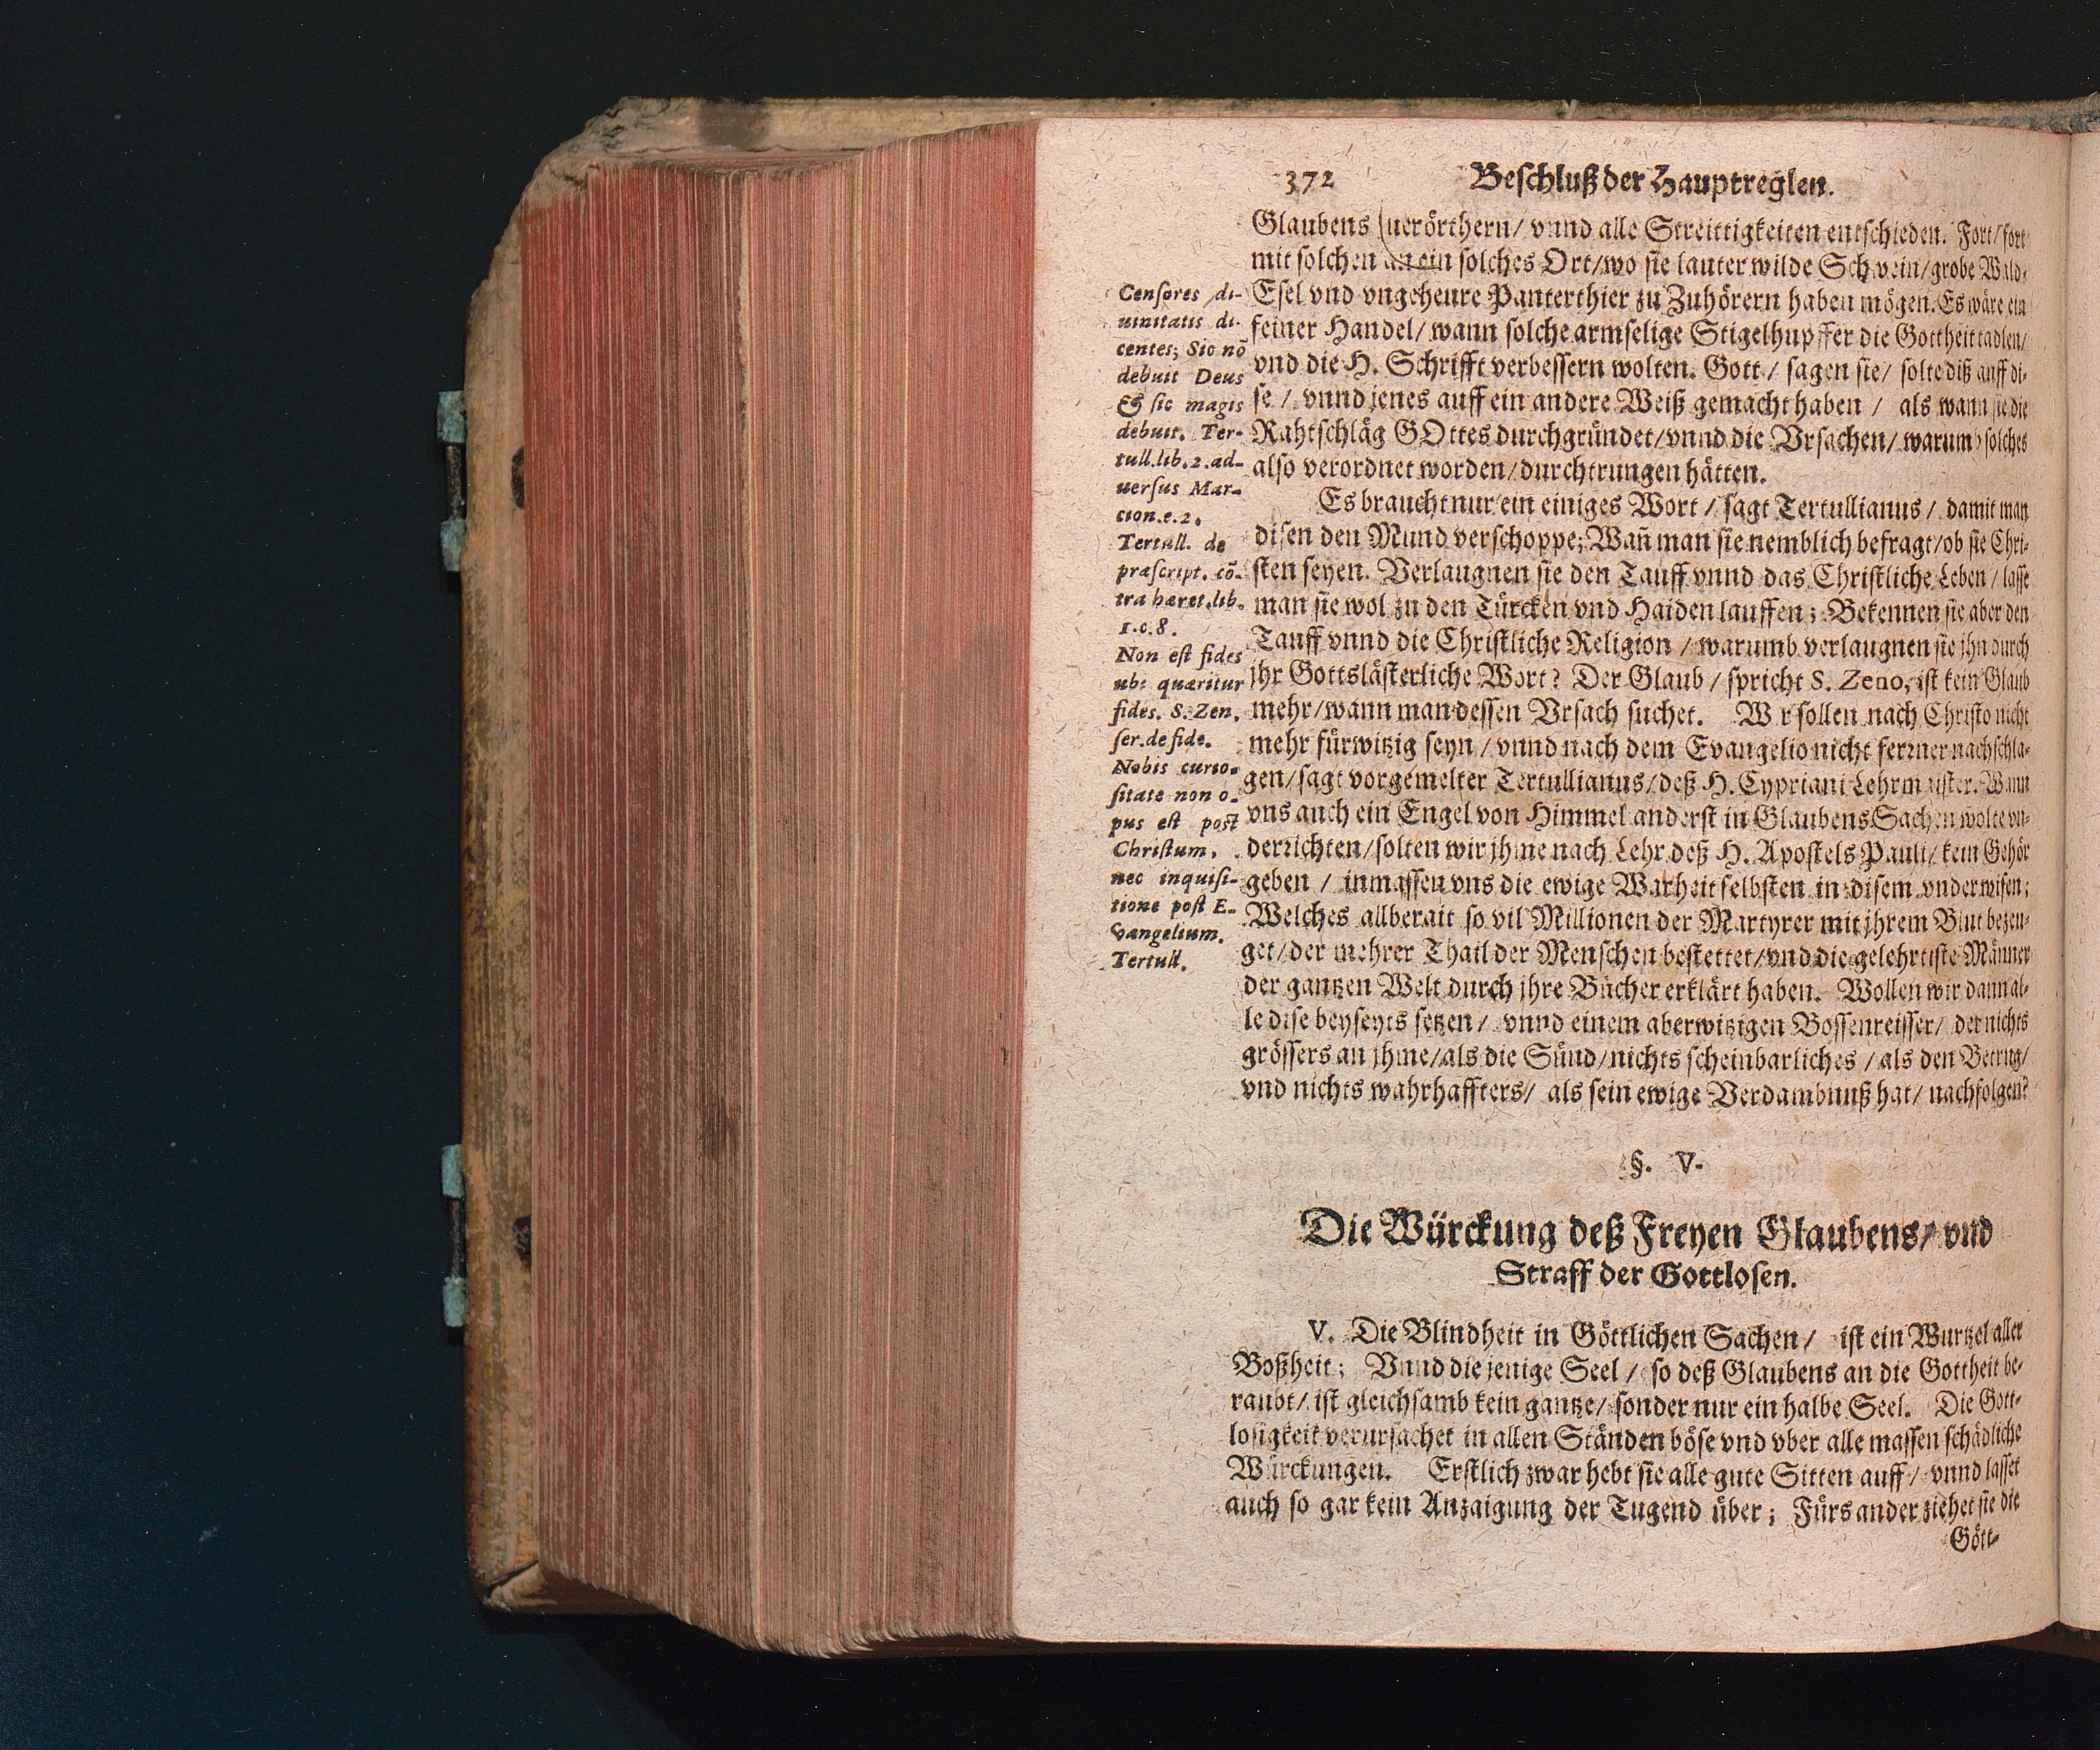 372 Beschluß der Hauptreglen.
Glaubens zuerörthern/ vnnd alle Streittigkeiten entschieden. Fort/fort
mit solchen an ein solches Ort/wo sie lauter wilde Schwein/grobe Wald-
Esel vnd vngeheure Panterthier zu Zuhörern haben mögen. Es wäre ein
feiner Handel/ wann solche armselige Stigelhupffer die Gottheit tadlen/
vnd die H. Schrifft verbessern wolten. Gott/ sagen sie/ solte diß auff di-
se/ vnnd jenes auff ein andere Weiß gemacht haben/ als wann sie die
Rahtschläg GOttes durchgründet/vnnd die Vrsachen/ warumb solches
also verordnet worden/durchtrungen hätten.
Es braucht nur ein einiges Wort/ sagt Tertullianus/ damit man
disen den Mund verschoppe; Wañ man sie nemblich befragt/ob sie Chri-
sten seyen. Verlaugnen sie den Tauff vnnd das Christliche Leben/ lasse
man sie wol zu den Türcken vnd Haiden lauffen; Bekennen sie aber den
Tauff vnnd die Christliche Religion/ warumb verlaugnen sie jhn durch
jhr Gottslästerliche Wort? Der Glaub/ spricht S. Zeno, ist kein Glaub
mehr/wann man dessen Vrsach suchet. Wir sollen nach Christo nicht
mehr fürwitzig seyn/ vnnd nach dem Evangelio nicht ferrner nachschla-
gen/sagt vorgemelter Tertullianus/deß H. Cypriani Lehrmaister. Wann
vns auch ein Engel von Himmel anderst in Glaubens Sachen wolte vn-
derrichten/solten wir jhme nach Lehr deß H. Apostels Pauli/ kein Gehör
geben/ inmassen vns die ewige Warheit selbsten in disem vnderwisen;
Welches allberait so vil Millionen der Martyrer mit jhrem Blut bezeu-
get/der mehrer Thail der Menschen bestettet/vnd die gelehrtiste Männer
der gantzen Welt durch jhre Bücher erklärt haben. Wollen wir dann al-
le dise beyseyts setzen/ vnnd einem aberwitzigen Bossenreisser/ der nichts
grössers an jhme/als die Sünd/nichts scheinbarliches/ als den Betrug/
vnd nichts wahrhaffters/ als sein ewige Verdambnuß hat/ nachfolgen?
Censores di-
uinitatis di-
centes; Sic nõ
debuit Deus
& sic magis
debuit. Ter-
tull.lib.2.ad-
uersus Mar-
cion.c.2.
Tertull. de
præscript. cõ-
tra hæret.lib.
1.c.8.
Non est fides
ubi quæritur
fides. S. Zen.
ser.de fide.
Nobis curio-
sitate non o-
pus est post
Christum,
nec inquisi-
tione post E-
vangelium.
Tertull.
§. V.
Die Würckung deß Freyen Glaubens/ vnd
Straff der Gottlosen.
V. Die Blindheit in Göttlichen Sachen/ ist ein Wurtzel aller
Boßheit; Vnnd die jenige Seel/ so deß Glaubens an die Gottheit be-
raubt/ ist gleichsamb kein gantze/ sonder nur ein halbe Seel. Die Gott-
losigkeit verursachet in allen Ständen böse vnd vber alle massen schädliche
Würckungen. Erstlich zwar hebt sie alle gute Sitten auff/ vnnd lasset
auch so gar kein Anzaigung der Tugend über; Fürs ander ziehet sie die
Gött-